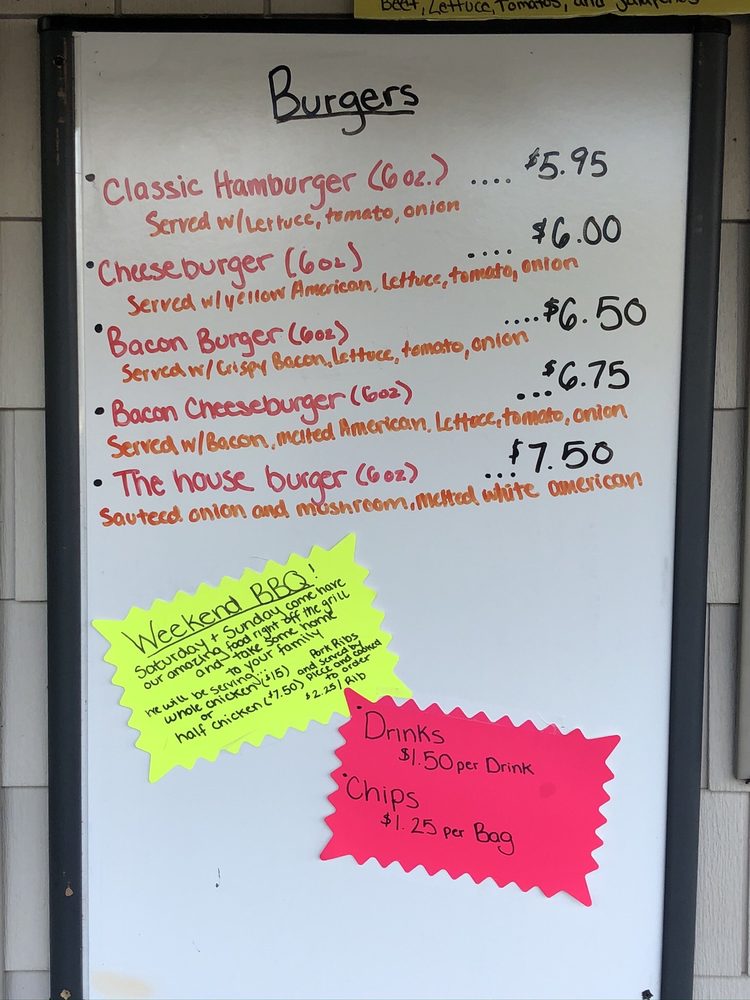 Beef, Lettuce, Tomatos, and Jalapeños
Burgers
• Classic Hamburger (6 oz.) .... $5.95
Served w/Lettuce, tomato, onion
• Cheeseburger (6oz) .... $6.00
Served w/yellow American, Lettuce, tomato, onion
• Bacon Burger (6oz) .... $6.50
Served w/ Crispy Bacon, Lettuce, tomato, onion
• Bacon Cheeseburger (6oz) ... $6.75
Served w/Bacon, melted American, Lettuce, tomato, onion
• The house burger (6oz) ... $7.50
Sauteed onion and mushroom, melted white american
Weekend BBQ!
Saturday + Sunday come have
our amazing food right off the grill
and take some home
to your family
We will be serving...
whole chicken ($15)
or
half chicken ($7.50)
Pork Ribs
and served by
piece and cooked
to order
$2.25/Rib
• Drinks
$1.50 per Drink
• Chips
$1.25 per Bag